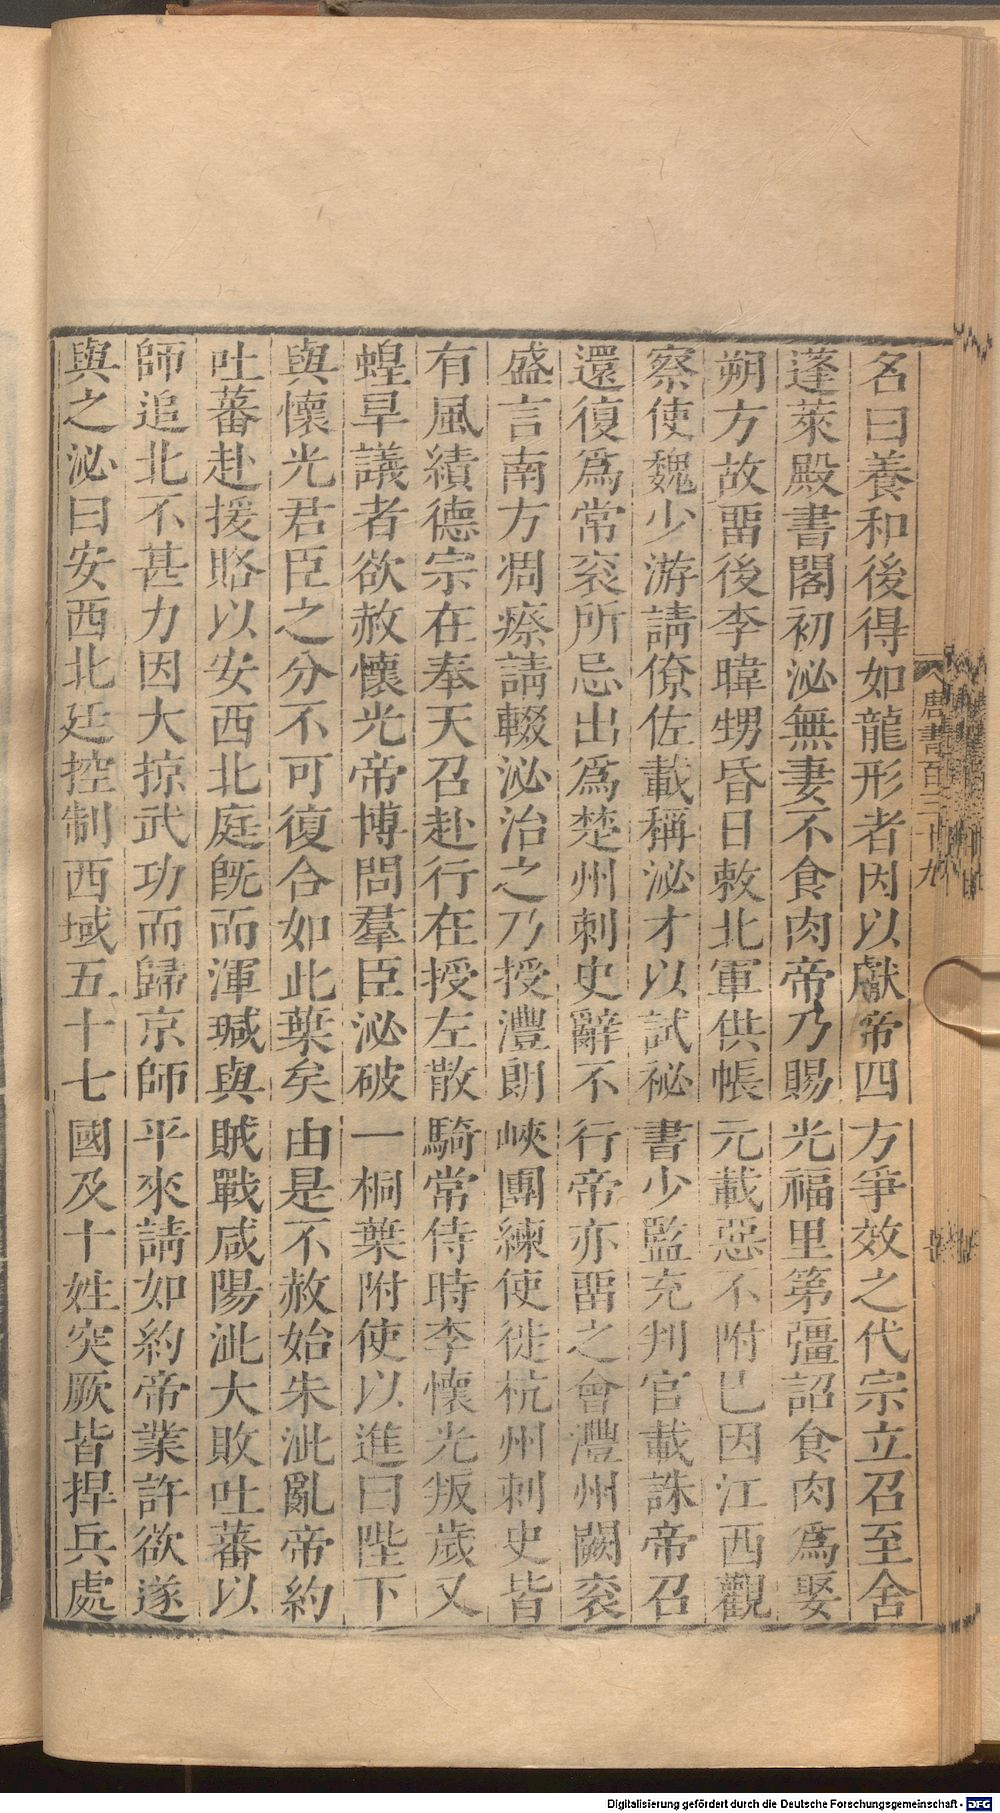 名曰養和後得如龍形者因以獻帝四方爭效之代宗立召至舍
蓬萊殿書閣初泌無妻不食肉帝乃賜光福里第彊詔食肉爲娶
朔方故畱後李暐甥昏日敕北軍供帳元載惡不附已因江西觀
察使魏少游請僚佐載稱泌才以試祕書少監充判官載誅帝召
還復爲常衮所忌出爲楚州刺史辭不行帝亦畱之會澧州闕衮
盛言南方凋瘵請輟泌治之乃授澧朗峽團練使徙杭州刺史皆
有風績德宗在奉天召赴行在授左散騎常侍時李懷光叛歲又
蝗旱議者欲赦懷光帝博問羣臣泌破一桐葉附使以進曰陛下
與懷光君臣之分不可復合如此葉矣由是不赦始朱泚亂帝約
吐蕃赴援賂以安西北庭旣而渾瑊與賊戰咸陽泚大敗吐蕃以
師追北不甚力因大掠武功而歸京師平來請如約帝業許欲遂
與之泌曰安西北廷控制西域五十七國及十姓突厥皆捍兵處
唐書百三十九
Digitalisierung gefördert durch die Deutsche Forschungsgemeinschaft - DFG